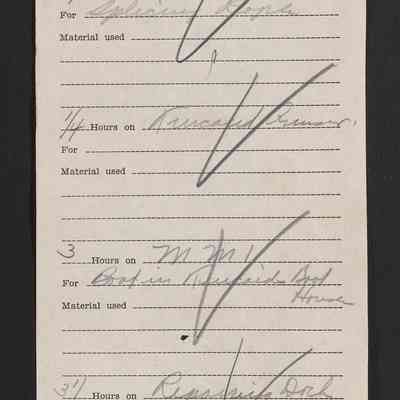 For Splicing Rope
Material used
1/4 Hours on
For
Material used
3 Hours on M M 1
For Boat in Boat
House
Material used
3 1/ Hours on Repairing Dock